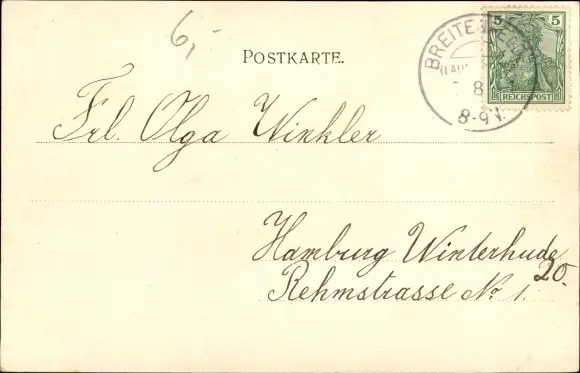 6,-
POSTKARTE.
5 5
REICHSPOST
8
8-9V.
Frl. Olga Winkler
Hamburg Winterhude
20.
Rehmstrasse No 1.